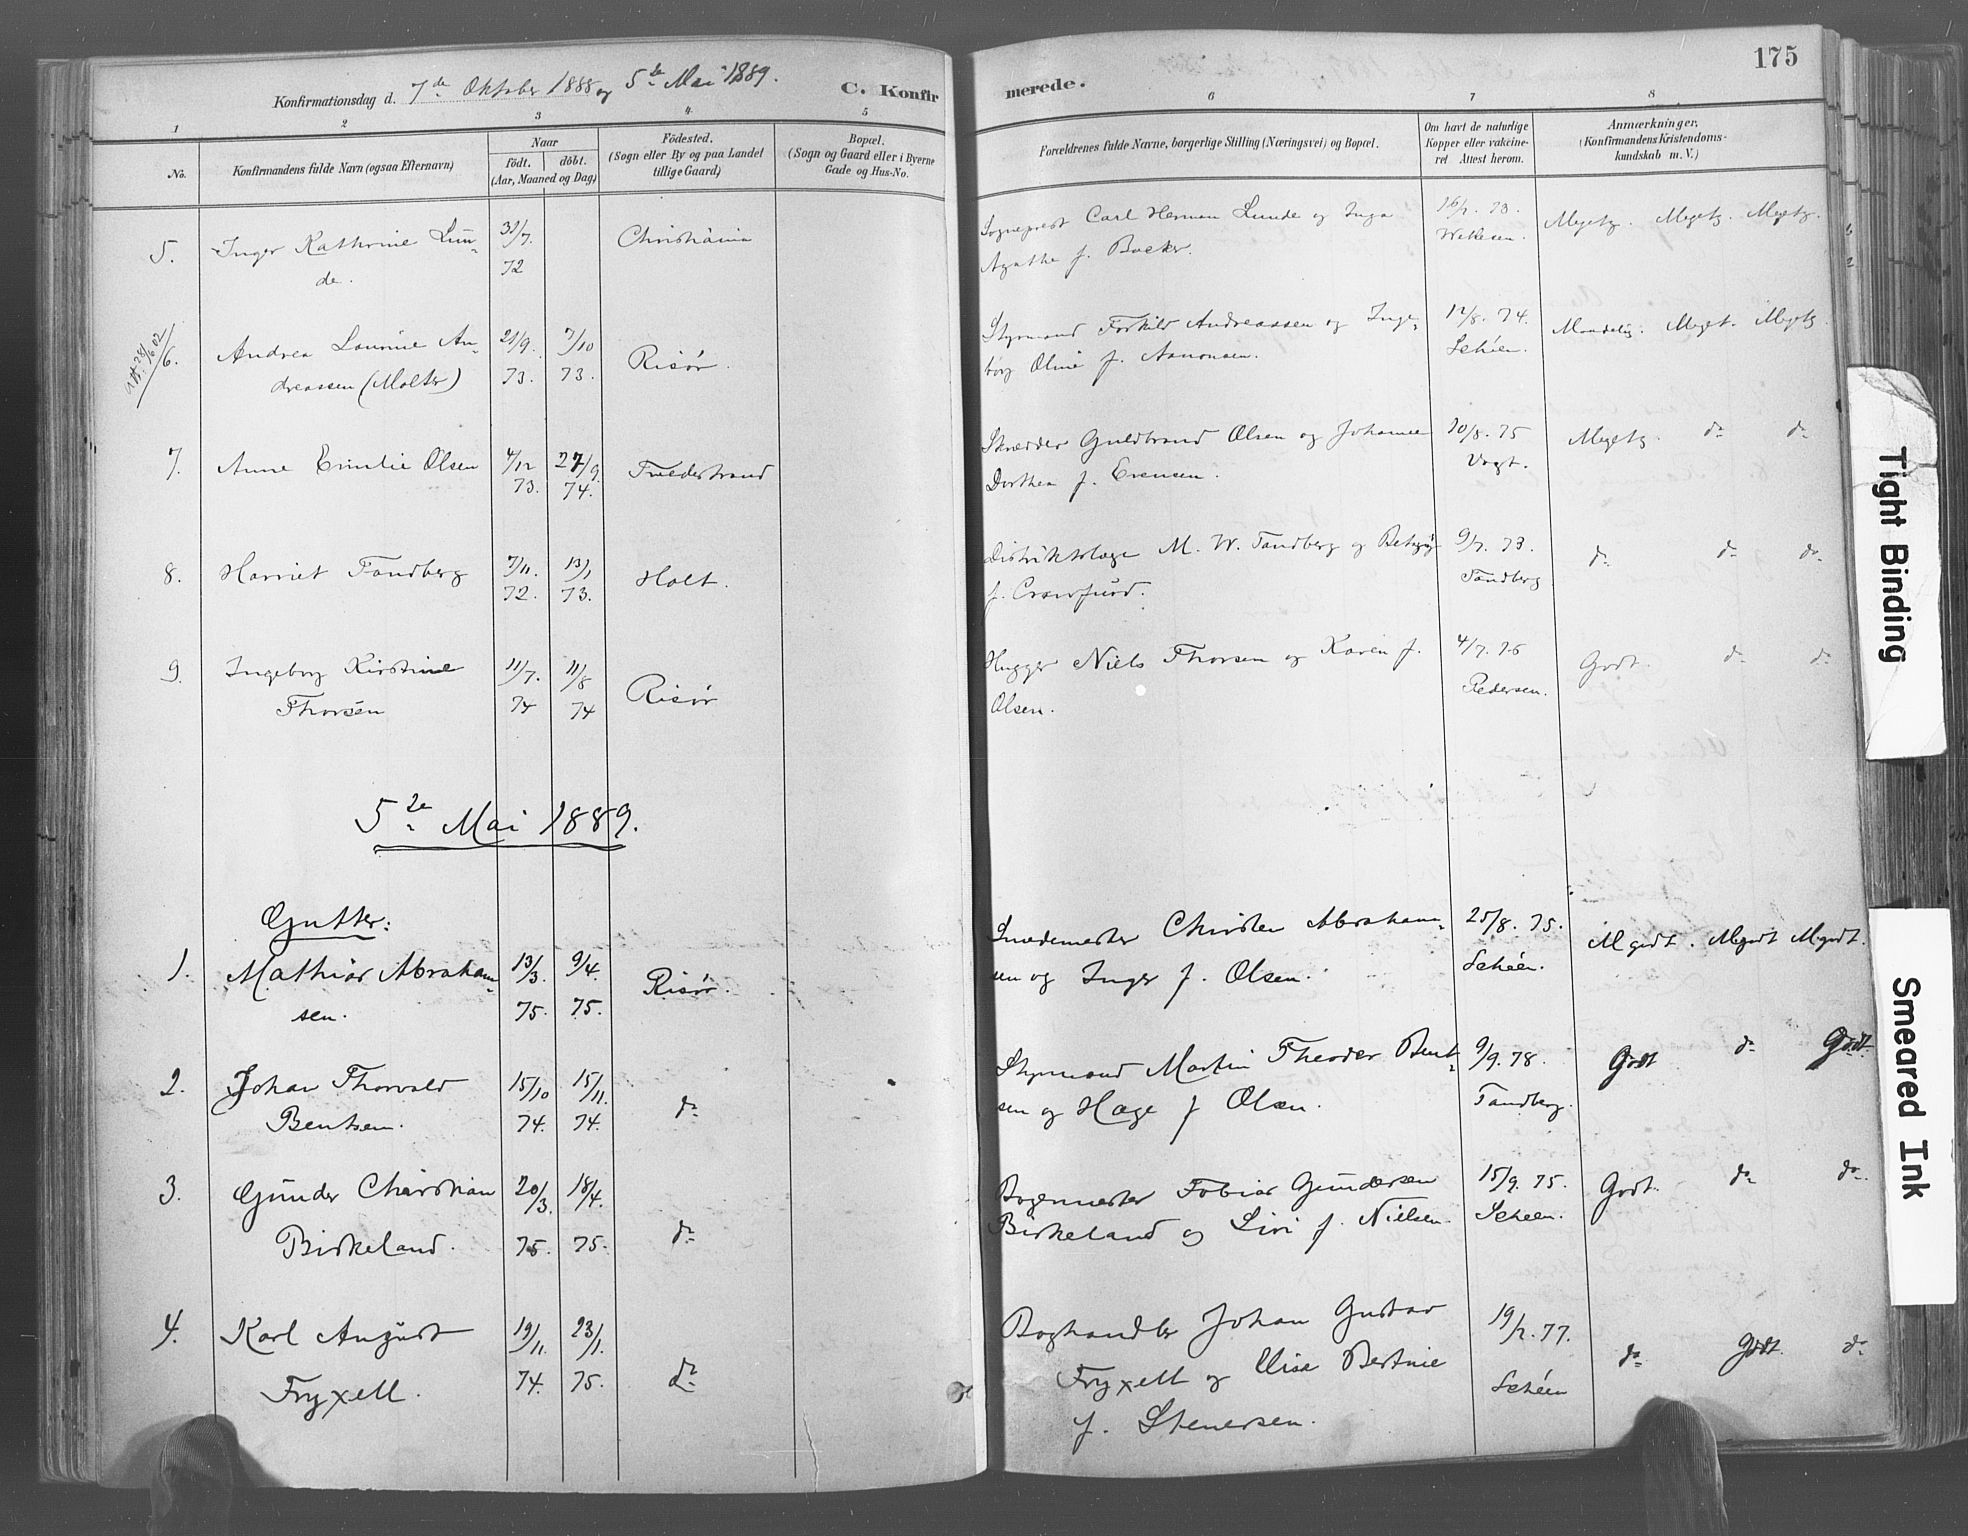 175
Konfirmationsdag d. 7de Oktober 1888 og 5te Mai 1889.
C. Konfirmerede.
1 2 3 4 5 6 7 8
No.
Konfirmandens fulde Navn (ogsaa Efternavn)
Naar
født. døbt.
(Aar, Maaned og Dag)
Fødested.
(Sogn eller By og paa Landet
tillige Gaard)
Bopæl.
(Sogn og Gaard eller i Byerne
Gade og Hus-No.
Forældrenes fulde Navne, borgerlige Stilling (Næringsvei) og Bopæl.
Om havt de naturlige
Kopper eller vaccine-
ret Attest herom.
Anmærkninger.
(Konfirmandens Kristendoms-
kundskab m. V.)
5. Inger Kathrine Lun-
de.
31/7. 72
Christiania
Sogneprest Carl Herman Lunde og Inga
Agathe f. Backer.
16/7. 73.
Megetg. Megetg. Megetg.
Att. 28/6 02
6. Andrea Lourine An-
dreassen (Molter)
21/9. 73. 7/10 73.
Risør.
Styrmand Torkild Andreassen og Inge-
borg Oline f. Aanonsen.
12/8. 74.
Schéen.
Maadelig. Meget. Megetg.
7. Anne Emilie Olsen
4/12 73. 27/9 74.
Tvedestrand
Skrædder Guldbrand Olsen og Johanne
Dorthea f. Evensen.
10/8. 75
Vogt.
Megetg. do do
8. Harriet Tandberg
7/11. 72. 13/1 73.
Holt.
Distriktslæge M. W. Tandberg og Betsy
f. Crawfurd.
9/7. 73.
Tandberg
do do do
9. Ingeborg Kirstine
Thorsen
11/7. 74 11/8 74
Risør
Hugger Niels Thorsen og Karen f.
Olsen.
4/7. 76
Pedersen.
Godt. do do
5te Mai 1889.
Gutter:
1. Mathias Abraham-
sen.
13/3. 75. 9/4. 75.
Risør.
Smedemester Christen Abraham-
sen og Inger f. Olsen.
25/8. 75.
Schéen.
Mgodt. Mgodt Mgodt.
2. Johan Thorvald
Bentsen.
15/10 74. 15/11. 74.
do
Styrmand Martin Theodor Bent-
sen og Hage f Olsen.
9/9. 78.
Tandberg.
Godt do Godt.
3. Gunder Christian
Birkeland.
20/3. 75. 18/4. 75.
do
Tobias Gundersen
Birkeland og Siri f. Nielsen.
15/9. 75.
Schéen.
Godt. do do
4. Karl August
Fryxell.
19/11. 74. 23/1. 75.
do
Boghandler Johan Gustav
Fryxell og Elise Bertine
f. Stenersen.
19/7. 77.
Schéen
do Godt. do
Tight Binding
Smeared Ink